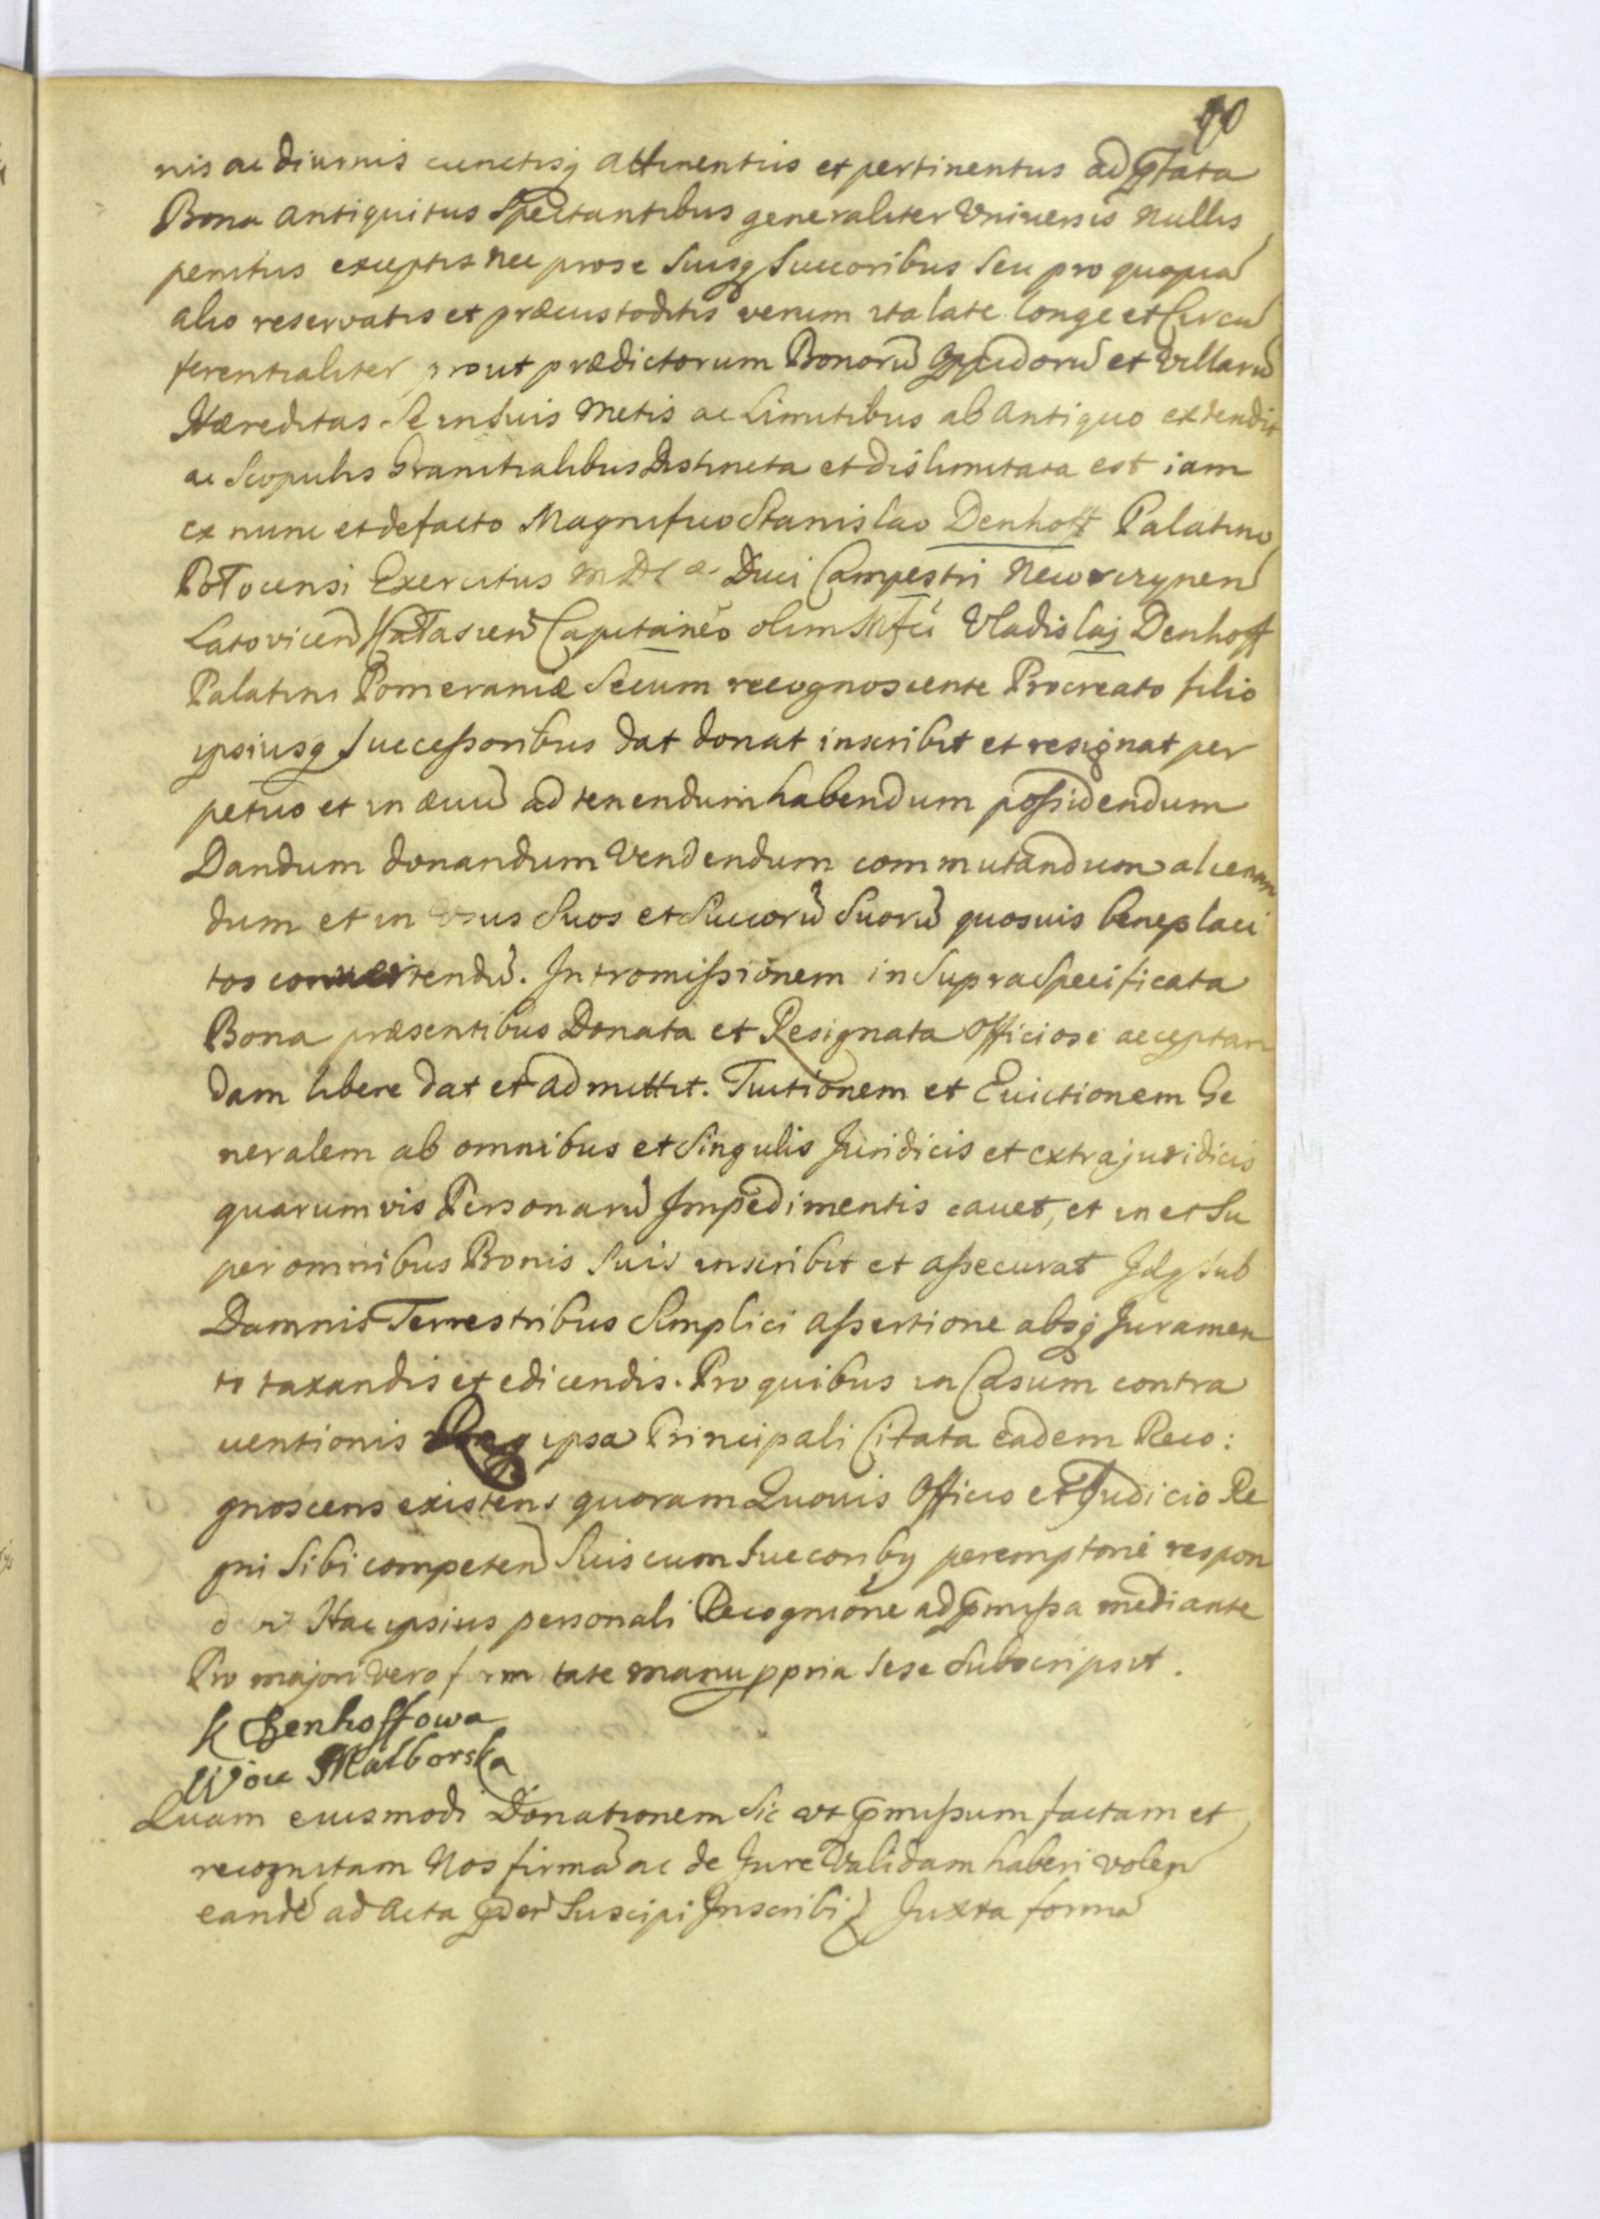 90
nis ac diurnis cunctisq attinentiis et pertinentus ad pstata
Bona antiquitus Spectantibus generaliter Vniversis Nullis
penitus exceptis nec pro se Suisq Succoribus Seu pro quopia
alio reservatis et præcustoditis verum ita late longe et Circu
ferentialiter prout prædictorum Bonorū Oppidorū et Villarū
Hæreditas Se in Suis Metis ac Limitibus ab Antiquo extendit
ac Scopulis Granitialibus Distincta et dislimitata est iam
ex nunc et de facto Magnifico Stanislao Denhoff Palatino
Potocensi Exercitus M D L æ Duci Campestri Nowo
Latovicen Capitaneo olim Mfci Vladislaj Denhoff
Palatini Pomeraniæ Secum recognoscente Procreato filio
ipsiusq Successoribus dat donat inscribit et resignat per
petuo et in ævū ad tenendum habendum possidendum
Dandum donandum Vendendum commutandum alienan
dum et in Vsus Suos et Succorū Suorū quosuis beneplaci
tos convertendū. Intromissionem in Supra Specificata
Bona præsentibus Donata et Resignata Officiose acceptan
dam libere dat et admittit. Tuitionem et Euictionem Ge
neralem ab omnibus et Singulis Juridicis et extrajuridicis
quarumvis Personarū Impedimentis cauet, et in et Su
per omnibus Bonis Suis inscribit et assecurat Idq sub
Damnis Terrestribus Simplici assertione absq Juramen
to taxandis et edicendis. Pro quibus in Casum contra
uentionis ipsa Principali Citata eadem Reco:
gnoscens existens quoram Quouis Officio et Judicio Re
gni Sibi competen Suis cum Succoriby peremptorie respon
debit Hac ipsius personali Recognione ad pmissa mediante
Pro majori vero firmitate manu ppria Sese Subscripsit.
K Denhoffowa
Woie Malborska
Quam eiusmodi Donationem Sic vt pmissum factam et
recognitam Nos firmā ac de Jure Validam haberi volen
eandē ad Acta pder Suscipi Inscribi q Juxta forma